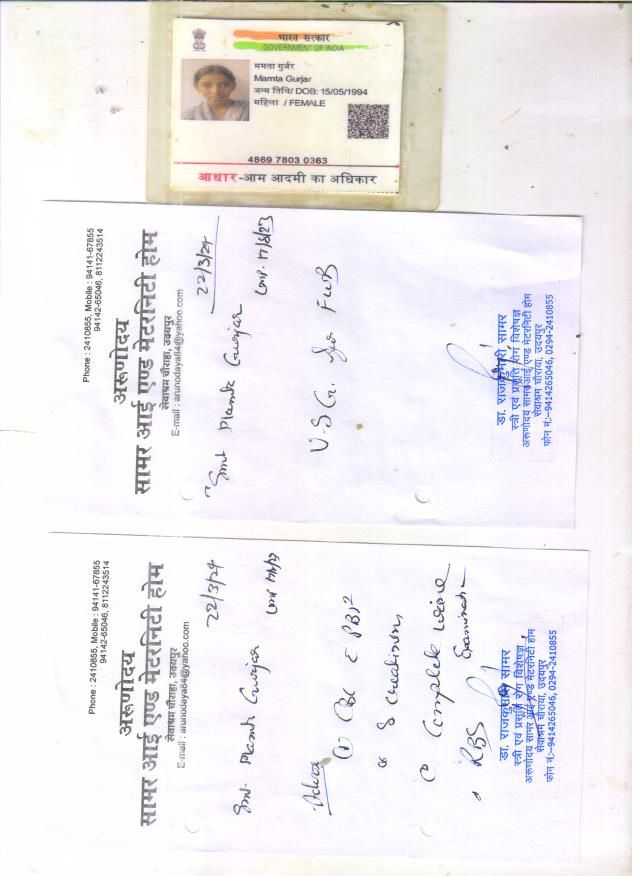 भारत सरकार
GOVERNMENT OF INDIA
ममता गुर्जर
Mamta Gurjar
जन्म तिथि/ DOB: 15/05/1994
महिला / FEMALE
4869 7803 0363
आधार-आम आदमी का अधिकार
Phone : 2410855, Mobile : 94141-67855
94142-65046, 8112243514
अरूणोदय
सामर आई एण्ड मेटरनिटी होम
सेवाश्रम चौराहा, उदयपुर
E-mail : arunodaya84@yahoo.com
22/3/24
Smt. Mamta Gurjar
LMP. 17/8/23
U-S Gr. for FWB
डा. राजकुमारी सामर
स्त्री एवं प्रसूति रोग विशेषज्ञ
अरूणोदय सामर आई एण्ड मेटरनिटी होम
सेवाश्रम चौराया, उदयपुर
फोन नं:–9414265046, 0294-2410855
Phone : 2410855, Mobile : 94141-67855
94142-65046, 8112243514
अरूणोदय
सामर आई एण्ड मेटरनिटी होम
सेवाश्रम चौराहा, उदयपुर
E-mail : arunodaya84@yahoo.com
22/3/24
Smt. Mamta Gurjar
LMP
Advice
CBC
S Creatinine
Complete Urine
Examination
RBS
डा. राजकुमारी सामर
स्त्री एवं प्रसूति रोग विशेषज्ञ
अरूणोदय सामर आई एण्ड मेटरनिटी होम
सेवाश्रम चौराया, उदयपुर
फोन नं:–9414265046, 0294-2410855